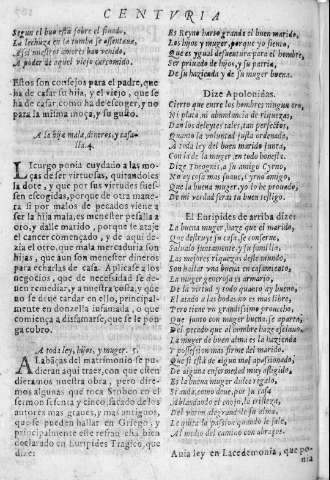 CENTVRIA
Segun el buo está sobre el finado,
La lechuza en la tumba se assentaua,
Assi nuestros amores han venido
A poder de aquel viejo carcomido.
Estos son consejos para el padre, que
ha de casar su hija, y el viejo, que se
ha de casar, como ha de escoger, y no
para la misma moça, y su gusto.
A la hija mala, dineros, y casa-
lla. 4.
Licurgo ponia cuydado a las mo-
ças de ser virtuosas, quitandoles
la dote, y que por sus virtudes fues-
sen escogidas, porque de otra mane-
ra si por malos de pecados viene a
ser la hija mala, es menester pesalla a
oro, y dalle marido, porque se ataje
el cancer començado, y de aqui de-
zia el otro, que mala mercaduria son
hijas, que aun son menester dineros
para echarlas de casa. Aplicase a los
negocios, que de necessidad se de-
uen remediar, y a nuestra costa, y que
no se deue tardar en ello, principal-
mente en donzella infamada, o que
começa a disfamarse, que se le pon-
ga cobro.
A toda ley, hijos, y muger. 5.
Alabãças del matrimonio se pu-
dieran aqui traer, con que esten-
dieramos nuestra obra, pero dire-
mos algunas que toca Stobeo en el
sermon sesenta y cinco, sacado de los
autores mas graues, y mas antiguos,
que se pueden hallar en Griego, y
principalmente este refran está bien
declarado en Euripides Tragico, que
dize:
Es Reyno harto grande el buen marido,
Los hijos y muger, porque yo siento,
Que es ygual desuentura para el hombre,
Ser priuado de hijos, y su patria,
De su hazienda y de su muger buena.
Dize Apolonidas.
Cierto que entre los hombres ningun oro,
Ni plata, ni abundancia de riquezas,
Dan los deleytes tales, tan perfectos,
Quanto la voluntad justa ordenada,
A toda ley del buen marido junta,
Con la de la muger en todo honesta.
Dize Theognis, a su amigo Cyrno,
No ay cosa mas suaue, ò cyrno amigo,
Que la buena muger, yo lo he prouado,
De mi verdad seras tu buen testigo.
El Euripides de arriba dize:
La buena muger, haze que el marido,
Que destruye su casa, se conserue,
Saluado justamente, y su familia,
Las mejores riquezas deste mundo,
Son hallar vna buena en casamiento,
La muger generosa es armario,
De la virtud y todo quanto ay bueno,
El atado a las bodas no es mas libre,
Pero tiene vn grandissimo prouecho,
Que junto con muger buena se aparta,
Del pecado que al hombre haze afeminado,
La muger de buen alma es la hazienda
Y possession mas firme del marido,
Que si està de algun mal apassionado,
De alguna enfermedad muy afligido,
Es la buena muger dulce regalo,
Si anda, como deue, por la casa
Ablandando el enojo, la tristeza,
Del varon alegrandole su alma,
Le quita la passion quando le sale,
Al modo del camino con abraços.
Auia ley en Lacedemonia, que po-
nia